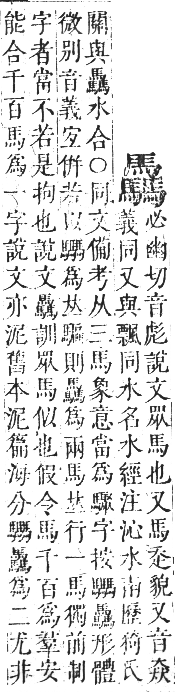 驫必幽切音彪說文眾馬也又馬走貌又音猋
義同又與飄同水名水經注沁水南歷猗氏
關與驫水合○同文備考从三馬象意當爲驟字按騳驫形體
微別音義宜併若以騳爲𠀤驅則驫爲兩馬𠀤行一馬獨前制
字者當不若是拘也說文驫訓眾馬似也假令馬千百爲羣安
能合千百馬爲一字說文亦泥舊本泥篇海分騳驫爲二尤非